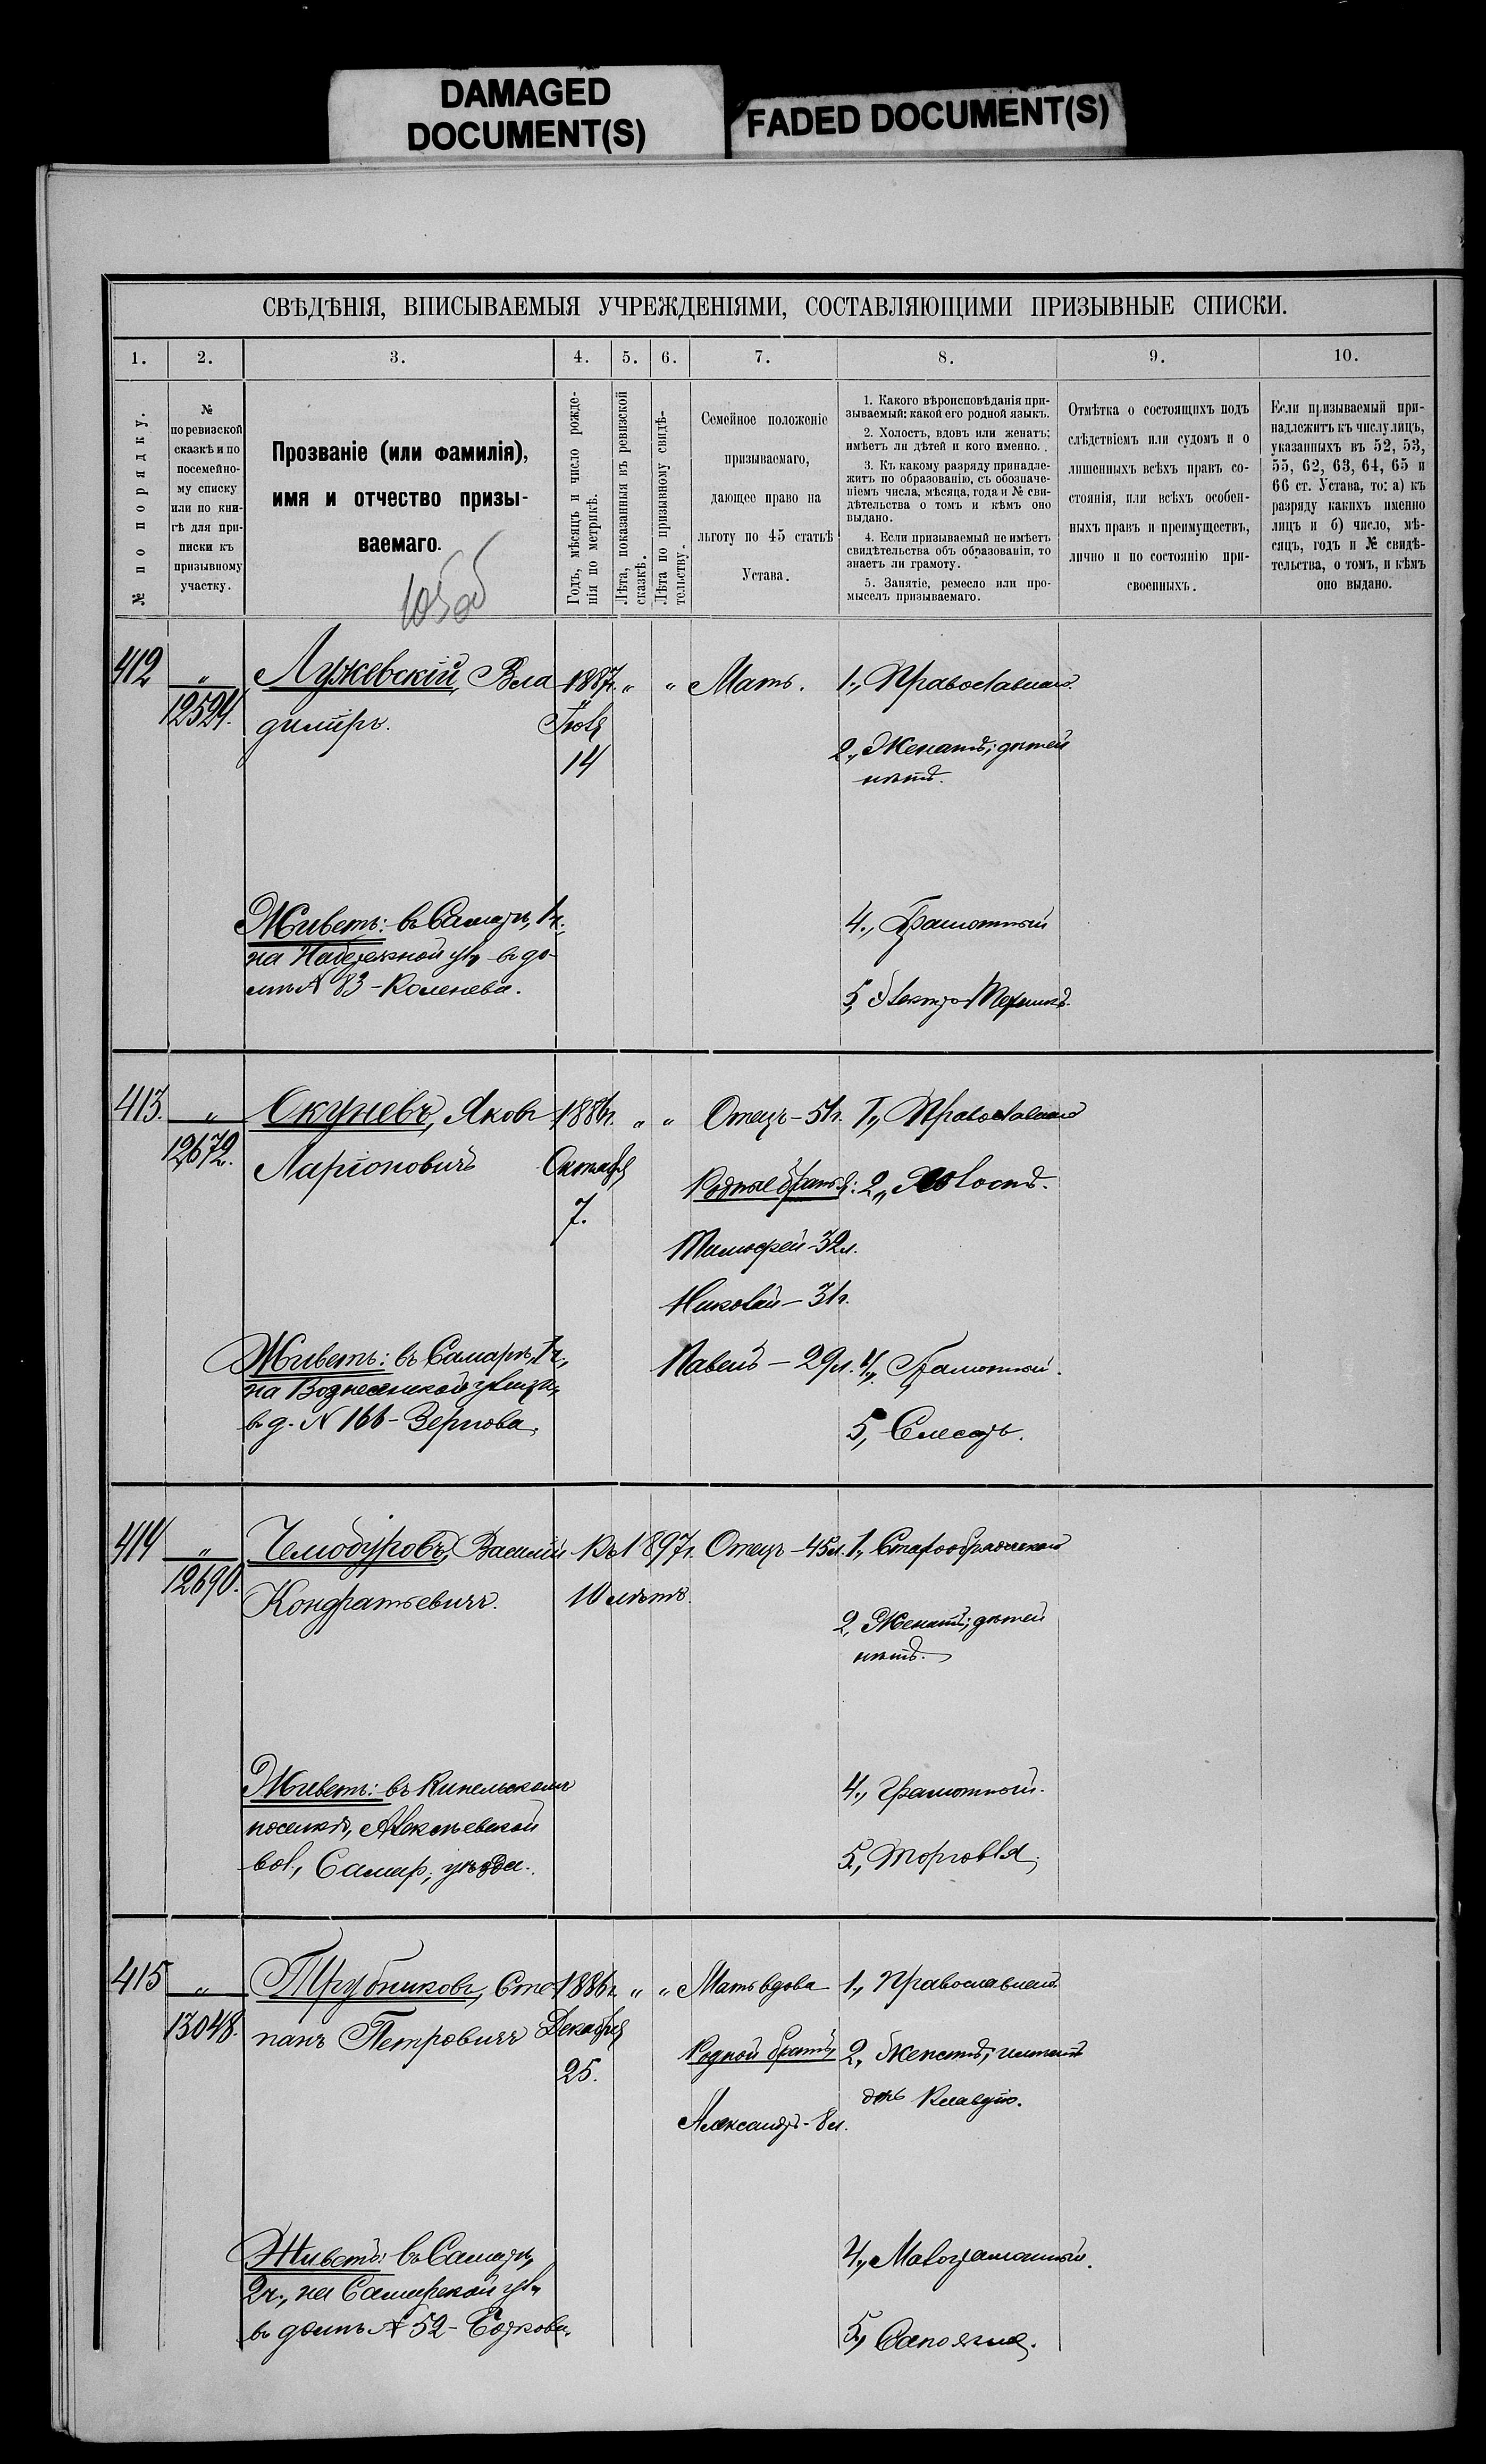 DAMAGED
DOCUMENT(S)
FADED DOCUMENT(S)
СВѢДѢНІЯ, ВПИСЫВАЕМЫЯ УЧРЕЖДЕНІЯМИ, СОСТАВЛЯЮЩИМИ ПРИЗЫВНЫЕ СПИСКИ.
1. 2. 3. 4. 5. 6. 7. 8. 9. 10.
№ по порядку.
№
по ревизской
сказкѣ и по
посемейно-
му списку
или по кни-
гѣ для при-
писки къ
призывному
участку.
Прозваніе (или фамилія),
имя и отчество призы-
ваемаго.
Годъ, мѣсяцъ и число рожде-
нія по метрикѣ.
Лѣта, показанныя въ ревизской
сказкѣ.
Лѣта по призывному свидѣ-
тельству.
Семейное положеніе
призываемаго,
дающее право на
льготу по 45 статьѣ
Устава.
1. Какого вѣроисповѣданія при-
зываемый: какой его родной языкъ.
2. Холостъ, вдовъ или женатъ;
имѣетъ ли дѣтей и кого именно.
3. Къ какому разряду принадле-
житъ по образованію, съ обозначе-
ніемъ числа, мѣсяца, года и № сви-
дѣтельства о томъ и кѣмъ оно
выдано.
4. Если призываемый не имѣетъ
свидѣтельства объ образованіи, то
знаетъ ли грамоту.
5. Занятіе, ремесло или про-
мыселъ призываемаго.
Отмѣтка о состоящихъ подъ
слѣдствіемъ или судомъ и о
лишенныхъ всѣхъ правъ со-
стоянія, или всѣхъ особен-
ныхъ правъ и преимуществъ,
лично и по состоянію при-
своенныхъ.
Если призываемый при-
надлежитъ къ числу лицъ,
указанныхъ въ 52, 53,
55, 62, 63, 64, 65 и
66 ст. Устава, то: а) къ
разряду какихъ именно
лицъ и б) число, мѣ-
сяцъ, годъ и № свидѣ-
тельства, о томъ, и кѣмъ
оно выдано.
412 " Лужевскій, Вла 1887г. " " Мать. 1., Православнаго.
12524. димiръ. Іюля
14
2., Женатъ; дѣтей
нѣтъ.
Живетъ: въ Самарѣ, 1ч.
на Набережной ул, въ до-
мѣ № 83 - Коленева.
4., Грамотный
5, Электро-Техникъ.
413. " Окуневъ, Яковъ 1886г. " " Отецъ - 51г. 1., Православнаго
12672. Ларіоновичъ Октября
7.
Родные братья: 2., Холостъ.
Тимофей - 32л.
Николай - 31г.
Павелъ - 29л. 4., Грамотный.
Живетъ: въ Самарѣ, 1ч,
на Вознесенской улицѣ,
въ д. № 166 - Зернова.
5, Слесарь.
414 " Челобуровъ, Василій Въ 1897г. Отецъ - 45л. 1., Старообрядческой
12690. Кондратьевичъ. 10 лѣтъ.
2, Женатъ; дѣтей
нѣтъ.
Живетъ: въ Кинельскомъ
поселкѣ, Алексѣевской
вол., Самар; уѣзда.
4., Грамотный.
5., Торговля;
415 " Трубниковъ, Сте- 1886г. " " Мать вдова 1., Православнаго
13048. панъ Петровичъ Декабря
25.
Родной братъ, 2, Женатъ; имѣетъ
дочь Клавдію.
Александръ - 8л.
Живетъ: въ Самарѣ,
2ч., на Самарской ул.,
въ домѣ № 52 -
4., Малограмотный.
5., Сапожникъ.